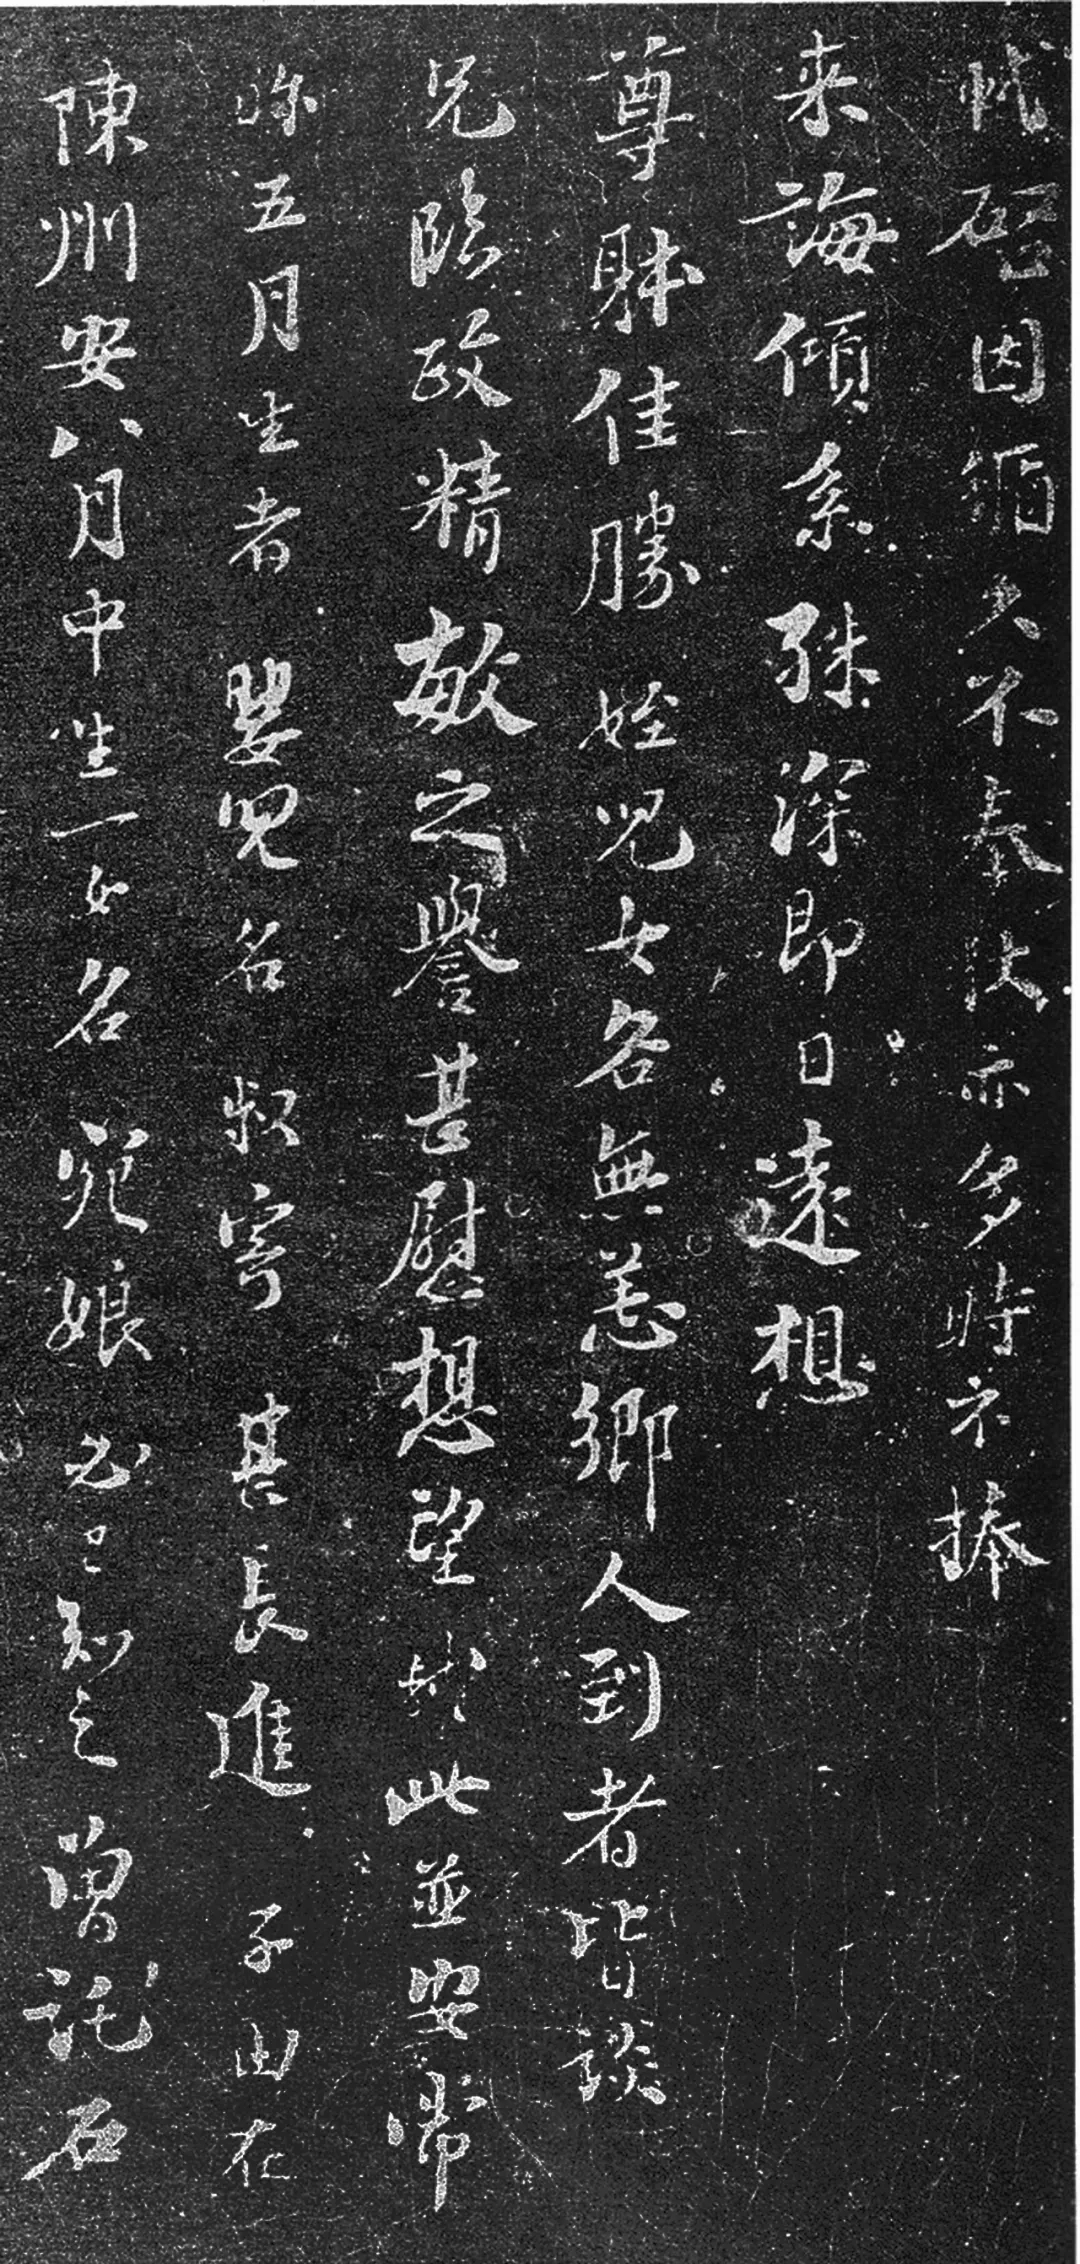 軾啓因循久不奉狀亦多時不捧
来誨傾系殊深即日遠想
尊體佳勝姪兒女各無恙鄉人到者皆談
兄臨政精敏之譽甚慰想望軾此並安常
弥五月生者嬰兒名叔寄甚長進子由在
陳州安八月中生一女名宛娘必已知之曽託石